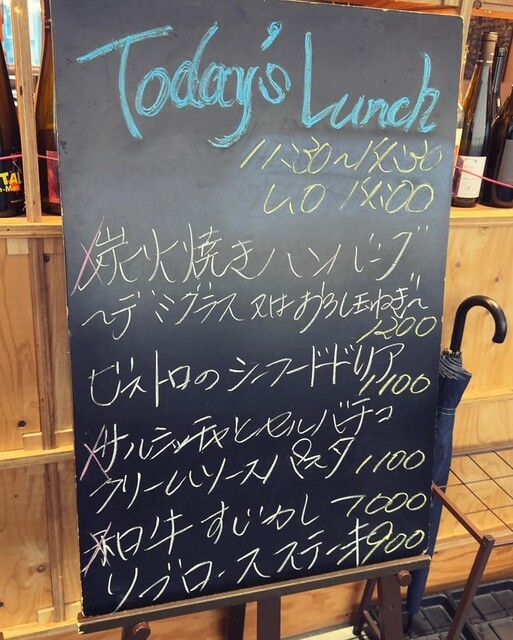 Today's Lunch
11:30〜14:30
L.O 14:00
炭火焼きハンバーグ
〜デミグラス又はおろし玉ねぎ〜
1200
ビストロのシーフードドリア
1100
サルシッチャとセルバチコ
クリームソースパスタ 1100
和牛すじカレー 1000
リブロースステーキ 1900